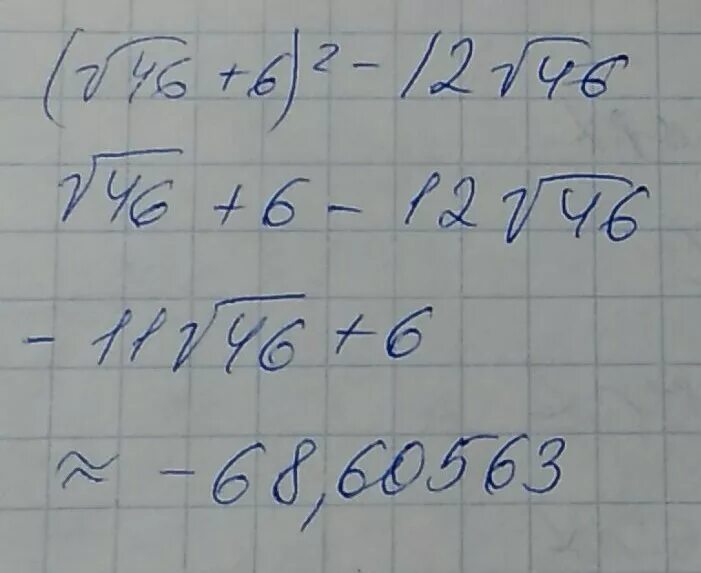 (√46 + 6)² - 12√46
√46 + 6 - 12√46
- 11√46 + 6
≈ - 68,60563